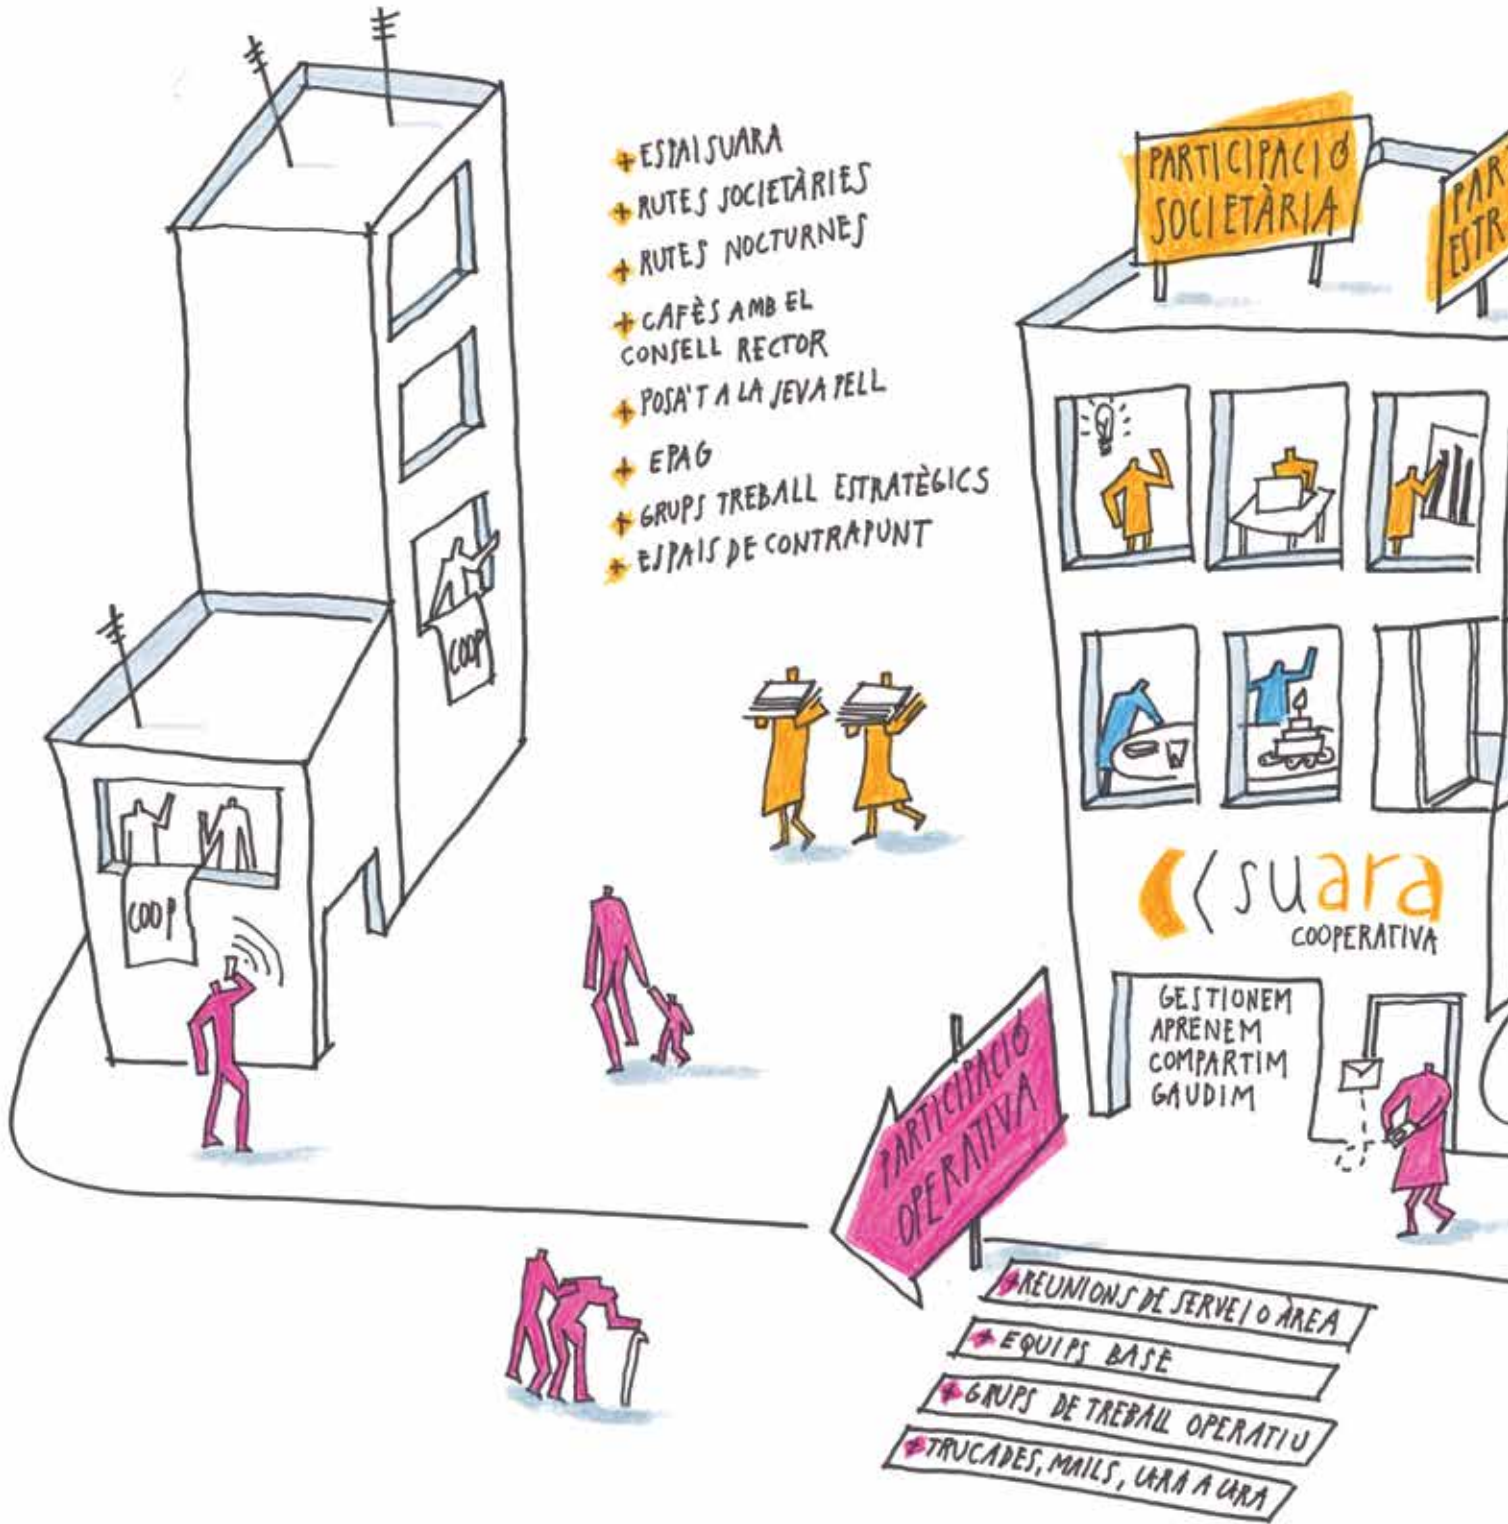 + ESPAI SUARA
+ RUTES SOCIETÀRIES
+ RUTES NOCTURNES
+ CAFÈS AMB EL
CONSELL RECTOR
+ POSA'T A LA SEVA PELL
+ EPAG
+ GRUPS TREBALL ESTRATÈGICS
+ ESPAIS DE CONTRAPUNT
PARTICIPACIÓ
SOCIETÀRIA
PART
ESTR
COOP
COOP
suara
COOPERATIVA
GESTIONEM
APRENEM
COMPARTIM
GAUDIM
PARTICIPACIÓ
OPERATIVA
+ REUNIONS DE SERVEI O ÀREA
+ EQUIPS BASE
+ GRUPS DE TREBALL OPERATIU
+ TRUCADES, MAILS, CARA A CARA